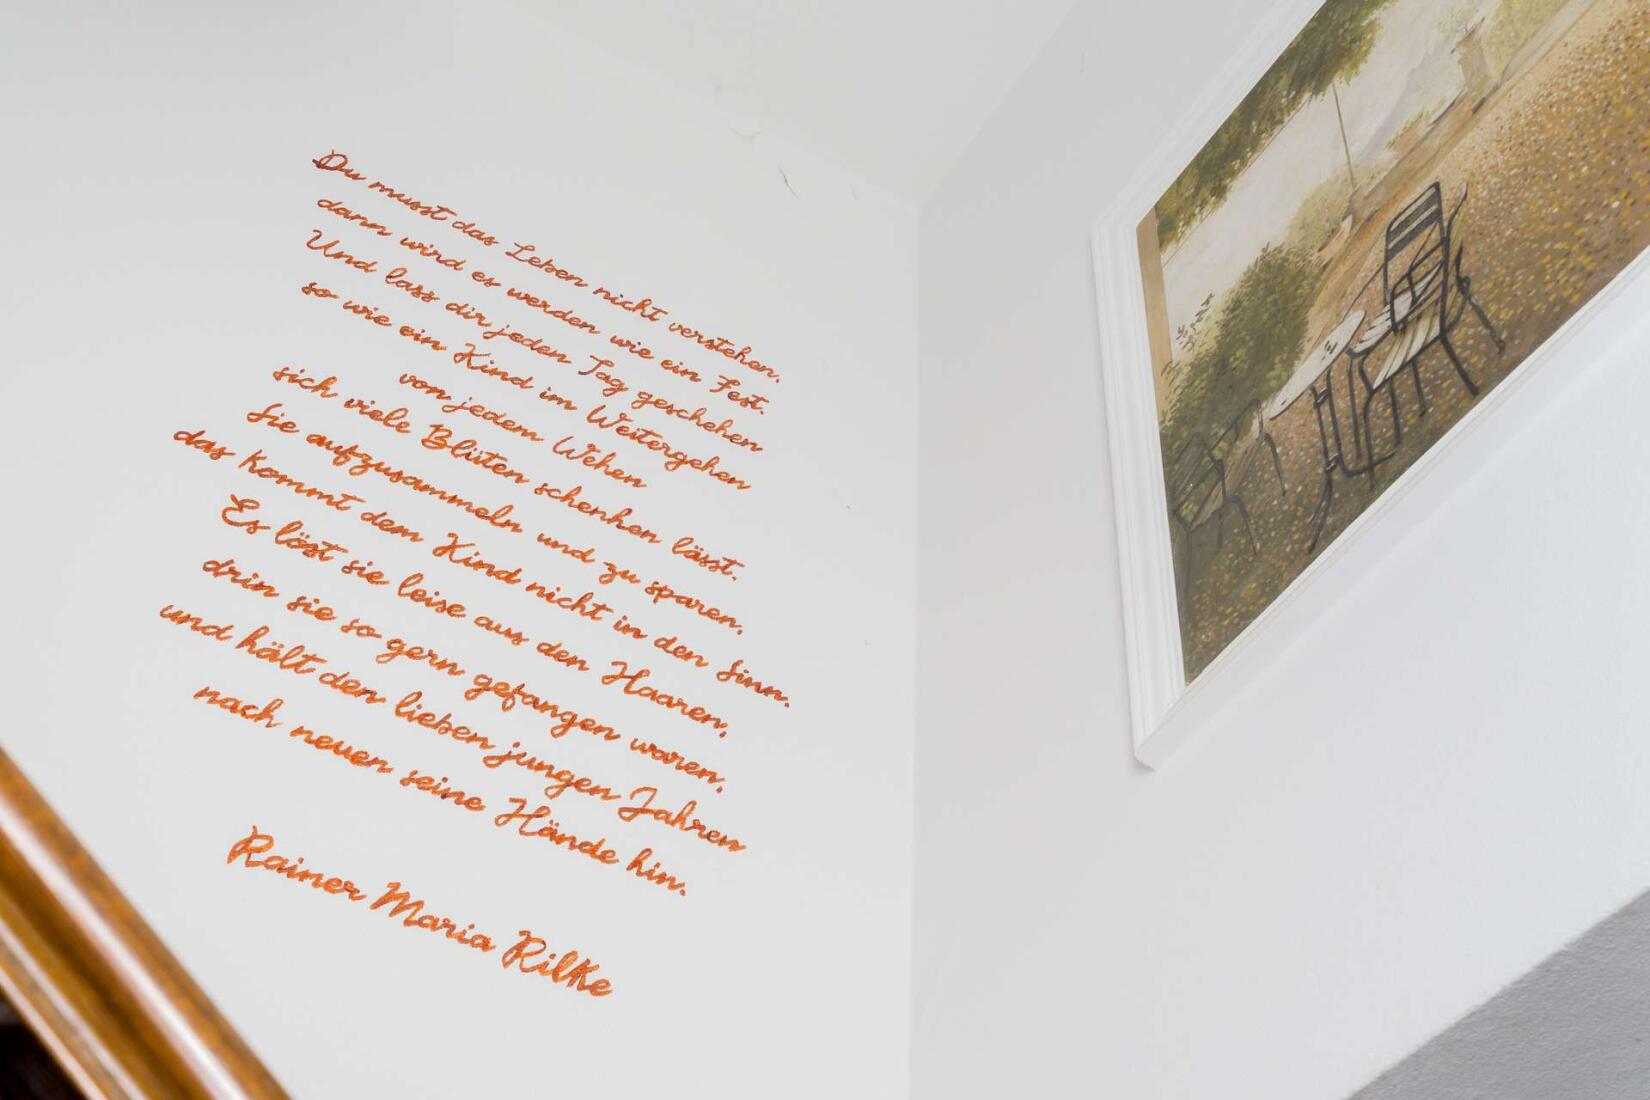 Du musst das Leben nicht verstehen.
dann wird es werden wie ein Fest.
Und lass dir jeden Tag geschehen
so wie ein Kind im Weitergehen
von jedem Wehen
sich viele Blüten schenken lässt.
Sie aufzusammeln und zu sparen,
das kommt dem Kind nicht in den Sinn.
Es löst sie leise aus den Haaren,
drin sie so gern gefangen waren,
und hält den lieben jungen Jahren
nach neuen seine Hände hin.
Rainer Maria Rilke